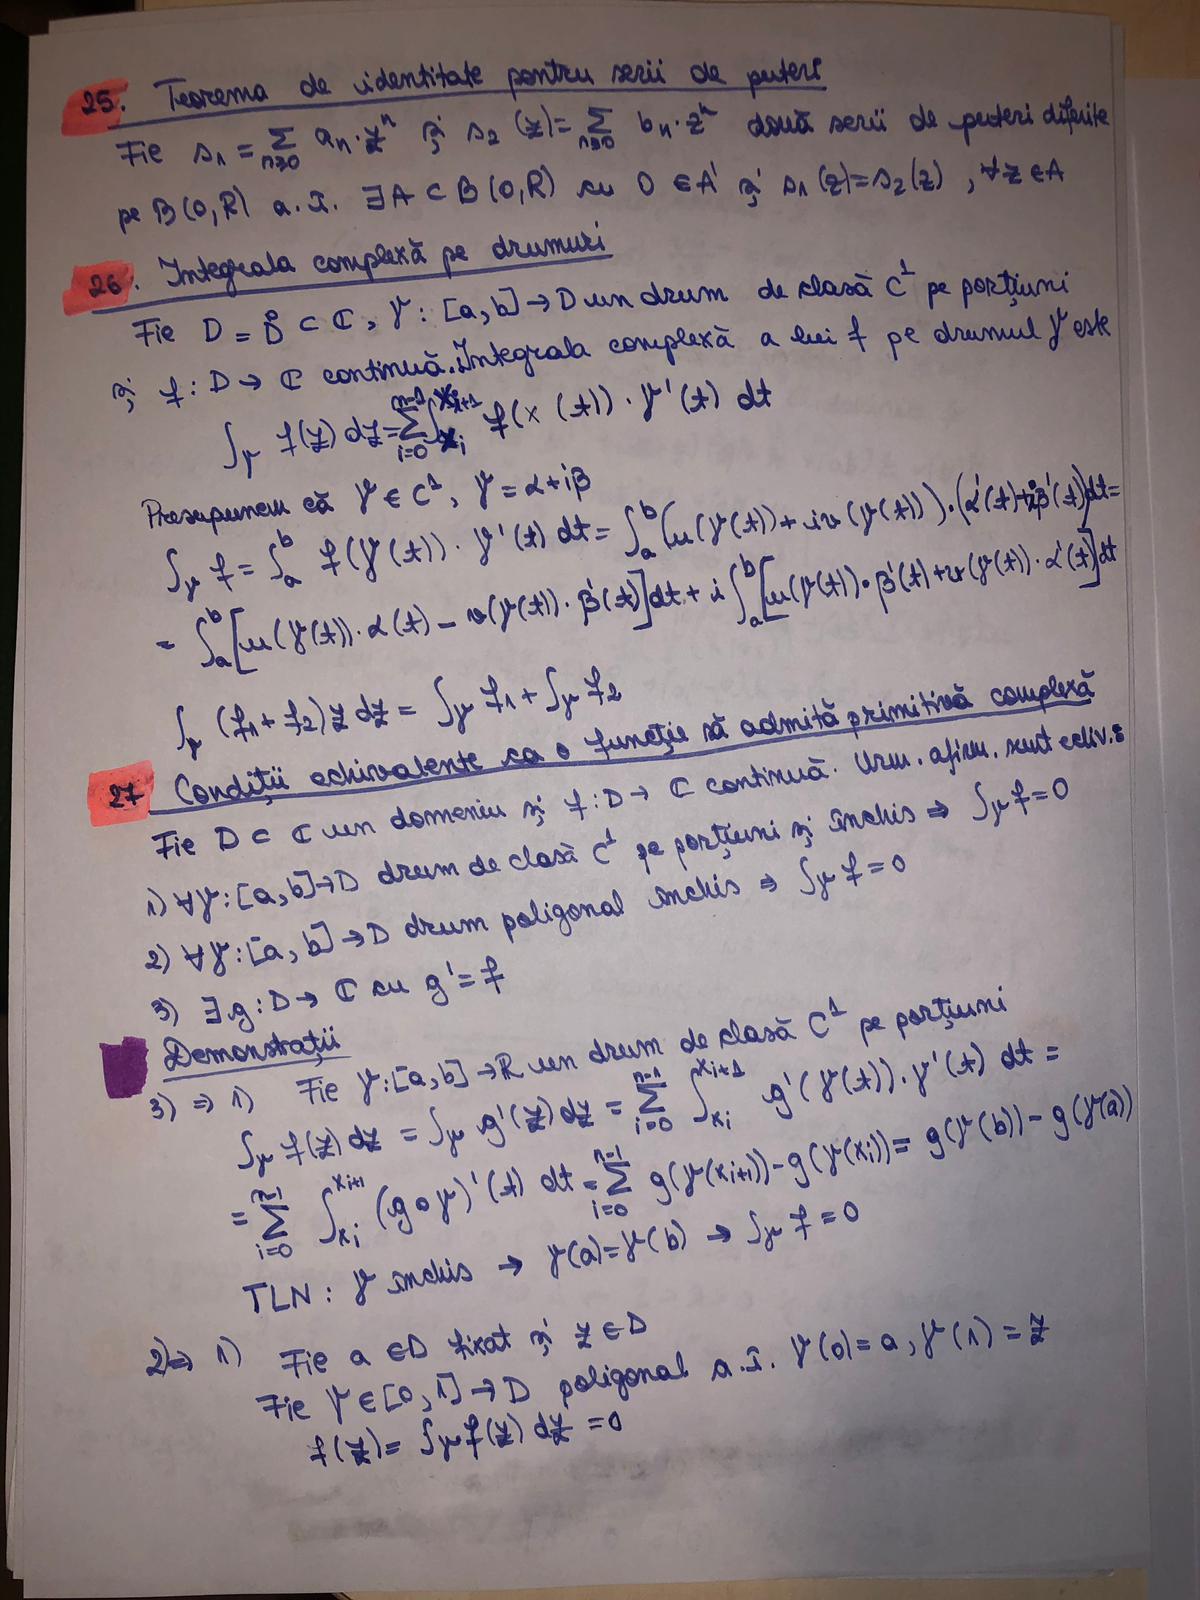 25. Teorema de identitate pentru serii de puteri
Fie s₁ = ∑_{n≥0} aₙ·zⁿ și s₂(z) = ∑_{n≥0} bₙ·zⁿ două serii de puteri diferite
pe B(0,R) a.î. ∃A ⊂ B(0,R) cu 0 ∈ A' și s₁(z)=s₂(z), ∀z∈A
26. Integrala complexă pe drumuri
Fie D = D̊ ⊂ ℂ, γ: [a,b] → D un drum de clasă C¹ pe porțiuni
și f: D → ℂ continuă. Integrala complexă a lui f pe drumul γ este
∫_γ f(z) dz = ∑_{i=0}^{n-1} ∫_{x_i}^{x_{i+1}} f(x(t))·γ'(t) dt
Presupunem că γ ∈ C¹, γ = α+iβ
∫_γ f = ∫_a^b f(γ(t))·γ'(t) dt = ∫_a^b (u(γ(t)) + iv(γ(t)))·(α'(t)+iβ'(t))dt =
= ∫_a^b [u(γ(t))·α(t) - v(γ(t))·β'(t)]dt + i ∫_a^b [u(γ(t))·β'(t)+v(γ(t))·α'(t)]dt
∫_γ (f₁+f₂)z dz = ∫_γ f₁ + ∫_γ f₂
27 Condiții echivalente ca o funcție să admită primitivă complexă
Fie D ⊂ ℂ un domeniu și f: D → ℂ continuă. Urm. afirm. sunt echiv.:
1) ∀γ: [a,b] → D drum de clasă C¹ pe porțiuni și închis ⇒ ∫_γ f = 0
2) ∀γ: [a,b] → D drum poligonal închis ⇒ ∫_γ f = 0
3) ∃g: D → ℂ cu g' = f
Demonstrații
3) ⇒ 1) Fie γ: [a,b] → R un drum de clasă C¹ pe porțiuni
∫_γ f(z) dz = ∫_γ g'(z) dz = ∑_{i=0}^{n-1} ∫_{x_i}^{x_{i+1}} g'(γ(t))·γ'(t) dt =
= ∑_{i=0}^{n-1} ∫_{x_i}^{x_{i+1}} (g∘γ)'(t) dt = ∑_{i=0}^{n-1} g(γ(x_{i+1})) - g(γ(x_i)) = g(γ(b)) - g(γ(a))
TLN: γ închis → γ(a)=γ(b) → ∫_γ f = 0
2) ⇒ 1) Fie a ∈ D fixat și z ∈ D
Fie γ ∈ [0,1] → D poligonal a.î. γ(0)=a, γ(1)=z
f(z) = ∫_γ f(z) dz = 0